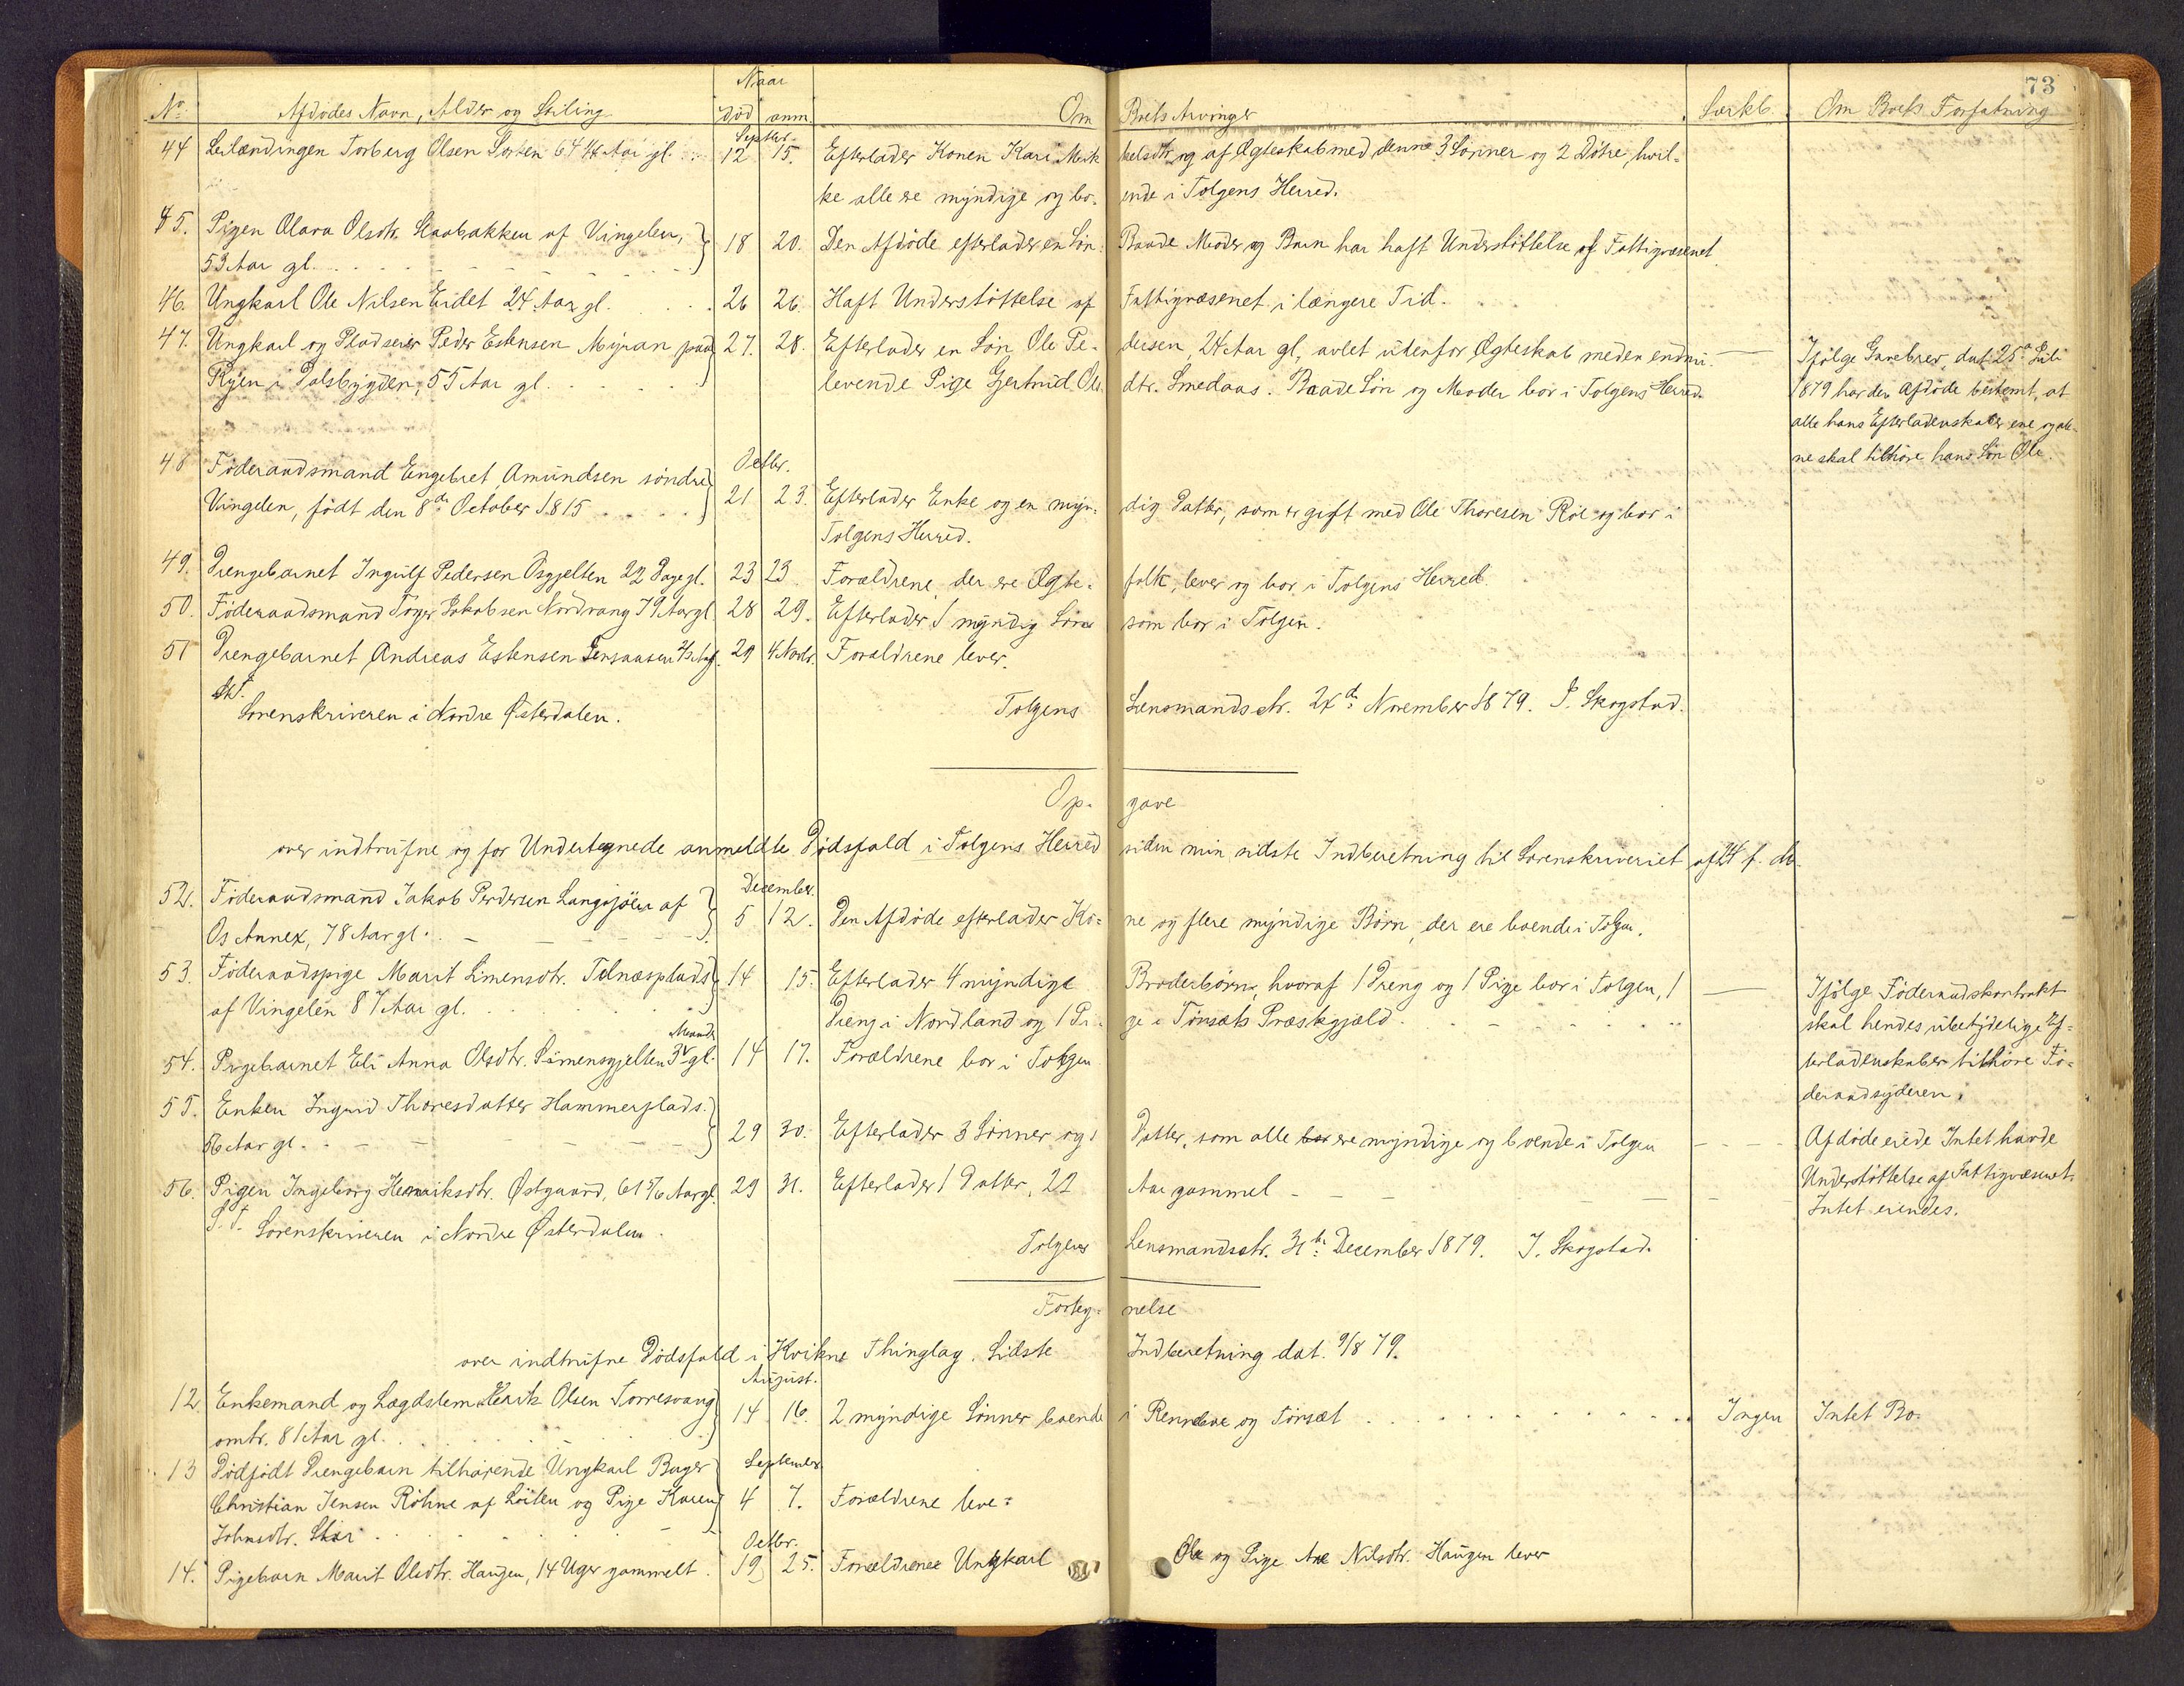 73
Naar
No. Afdødes Navn, Alder og Stiling død anm. Om Boets Arvinger Særkb. Om Boets Forfatning
Septbr.
44 Leilændingen Torberg Olsen 64 Aar gl. 12 15. Efterlader Konen Kari Mik kelsdtr. og af Ægteskab med denne 3 Sønner og 2 Døtre, hvil-
ke alle ere myndige og bo- ende i Tolgens Herred.
45. Pigen Olava Olsdtr. Staabakken af Vingelen, 18 20. Den Afdøde efterlader en Søn. Baade Moder og Barn har haft Understøttelse af Fattigvæsenet
53 Aar gl.
46. Ungkarl Ole Nilsen Eidet 24 Aar gl. 26 26. Haft Understøttelse af Fattigvæsenet i længere Tid.
47. Ungkarl og Pladseier Peder Estensen Myran paa 27. 28. Efterlader en Søn, Ole Pe- dersen, 24 Aar gl, avlet udenfor Ægteskab med en endnu
Ryen i Dalsbygden, 55 Aar gl. levende Pige Gjertrud Ols dtr. Smedaas. Baade Søn og Moder bor i Tolgens Herred.
Ifølge Gavebrev, dat. 25de Juli
1879 har den Afdøde bestemt, at
alle hans Efterladenskaber ene og ale-
ne skal tilhøre hans Søn Ole.
Octbr.
48 Føderaadsmand Engebret Amundsen søndre
Vingelen, født den 8de October 1815 21 23. Efterlader Enke og en myn- dig Datter, som er gift med Ole Thoresen Røe og bor i
Tolgens Herred.
49. Drengebarnet Ingulf Pedersen Osgjelten 22 Dage gl. 23 23 Forældrene, der ere Ægte- folk, lever og bor i Tolgens Herred.
50. Føderaadsmand Jakobsen Nordvang 79 Aar gl. 28 29. Efterlader 1 myndig Søn som bor i Tolgen.
51 Drengebarnet Andreas Estensen 29 4 Novbr. Forældrene lever.
Sorenskriveren i Nordre Østerdalen. Tolgens Lensmandsdtr. 24de November 1879. J. Skogstad.
Op- gave
over indtrufne og for Undertegnede anmeldte Dødsfald i Tolgens Herred siden min sidste Indberetning til Sorenskriveriet af 24 f. M.
December.
52. Føderaadsmand Jakob Pedersen Langsjøen af 5 12. Den Afdøde efterlader Ko- ne og flere myndige Børn, der ere boende i Tolgen.
Os Annex, 78 Aar gl.
53. Føderaadspige Marit Simensdtr. Telnæsplads 14 15. Efterlader 4 myndige Broderbørn, hvoraf 1 Dreng og 1 Pige bor i Tolgen, 1
af Vingelen 87 Aar gl. Dreng i Nordland og 1 Pi- ge i Tønsæts Præstegjæld.
Ifølge Føderaadskontrakt
skal hendes ubetydelige Ef-
terladenskaber tilhøre Fø-
deraadsyderen.
Maand.
54. Pigebarnet Eli Anna Olsdtr. Simensgjelten 3 gl. 14 17. Forældrene bor i Tolgen
55. Enken Ingrid Thoresdatter Hammerplads.
56 Aar gl. 29 30. Efterlader 3 Sønner og 1 Datter, som alle bor ere myndige og boende i Tolgen Afdøde eiede Intet havde
Understøttelse af Fattigvæsenet.
56. Pigen Ingeborg Henriksdtr. Østgaard, 61 5/6 Aar gl. 29 31. Efterlader 1 Datter, 22 Aar gammel Intet eiendes.
S. T. Sorenskriveren i Nordre Østerdalen. Tolgens Lensmandsdtr. 31te December 1879. J. Skogstad.
Forteg- nelse
over indtrufne Dødsfald i Kvikne Thinglag. Sidste Indberetning dat. 9/8 79.
August.
12 Enkemand og Lægdslem Olsen Torresvang 14 16. 2 myndige Sønner boende i Rennebu og Tønsæt Ingen Intet Bo.
omtr. 81 Aar gl.
September
13 Dødfødt Drengebarn tilhørende Ungkarl Bager
Christian Jensen Røhne af Løiten og Pige Karen 4 7. Forældrene leve
Johnsdtr.
Octbr.
14. Pigebarn Marit Olsdtr. Haugen, 14 Uger gammelt. 19 25. Forældrene Ungkarl Ole og Pige Ane Nilsdtr. Haugen lever